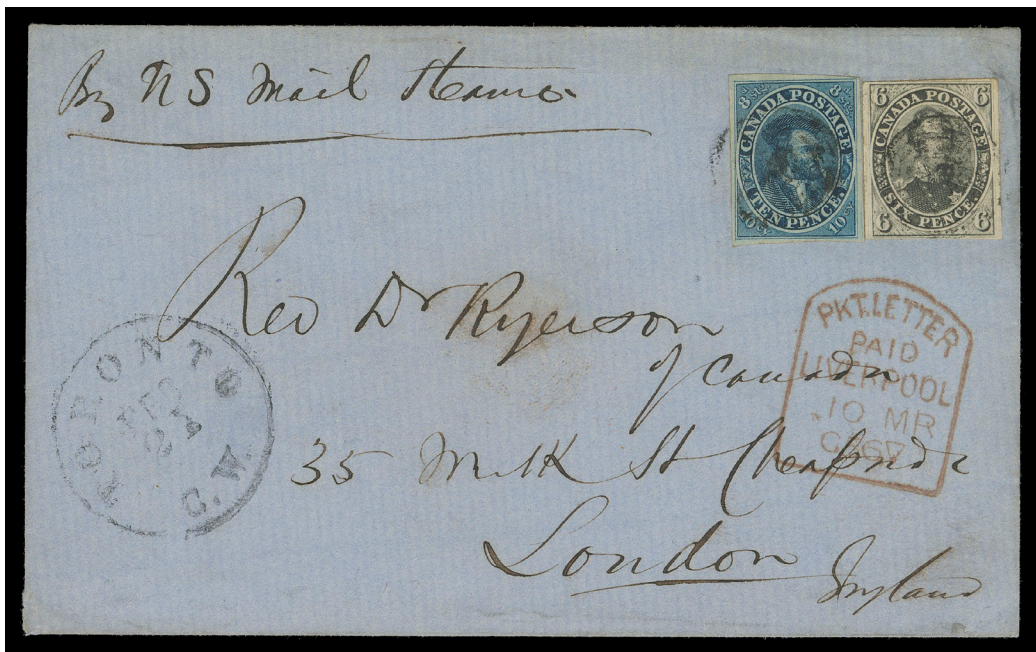 By US Mail Steamer
8 Stg 8 Stg
CANADA POSTAGE
TEN PENCE.
10 cy 10 cy
6 6
CANADA POSTAGE
SIX PENCE
6 6
Rev Dr Ryerson
of Canada
35 Milk St Cheapside
London
England
TORONTO
FEB
C.W.
PKT. LETTER
PAID
LIVERPOOL
10 MR